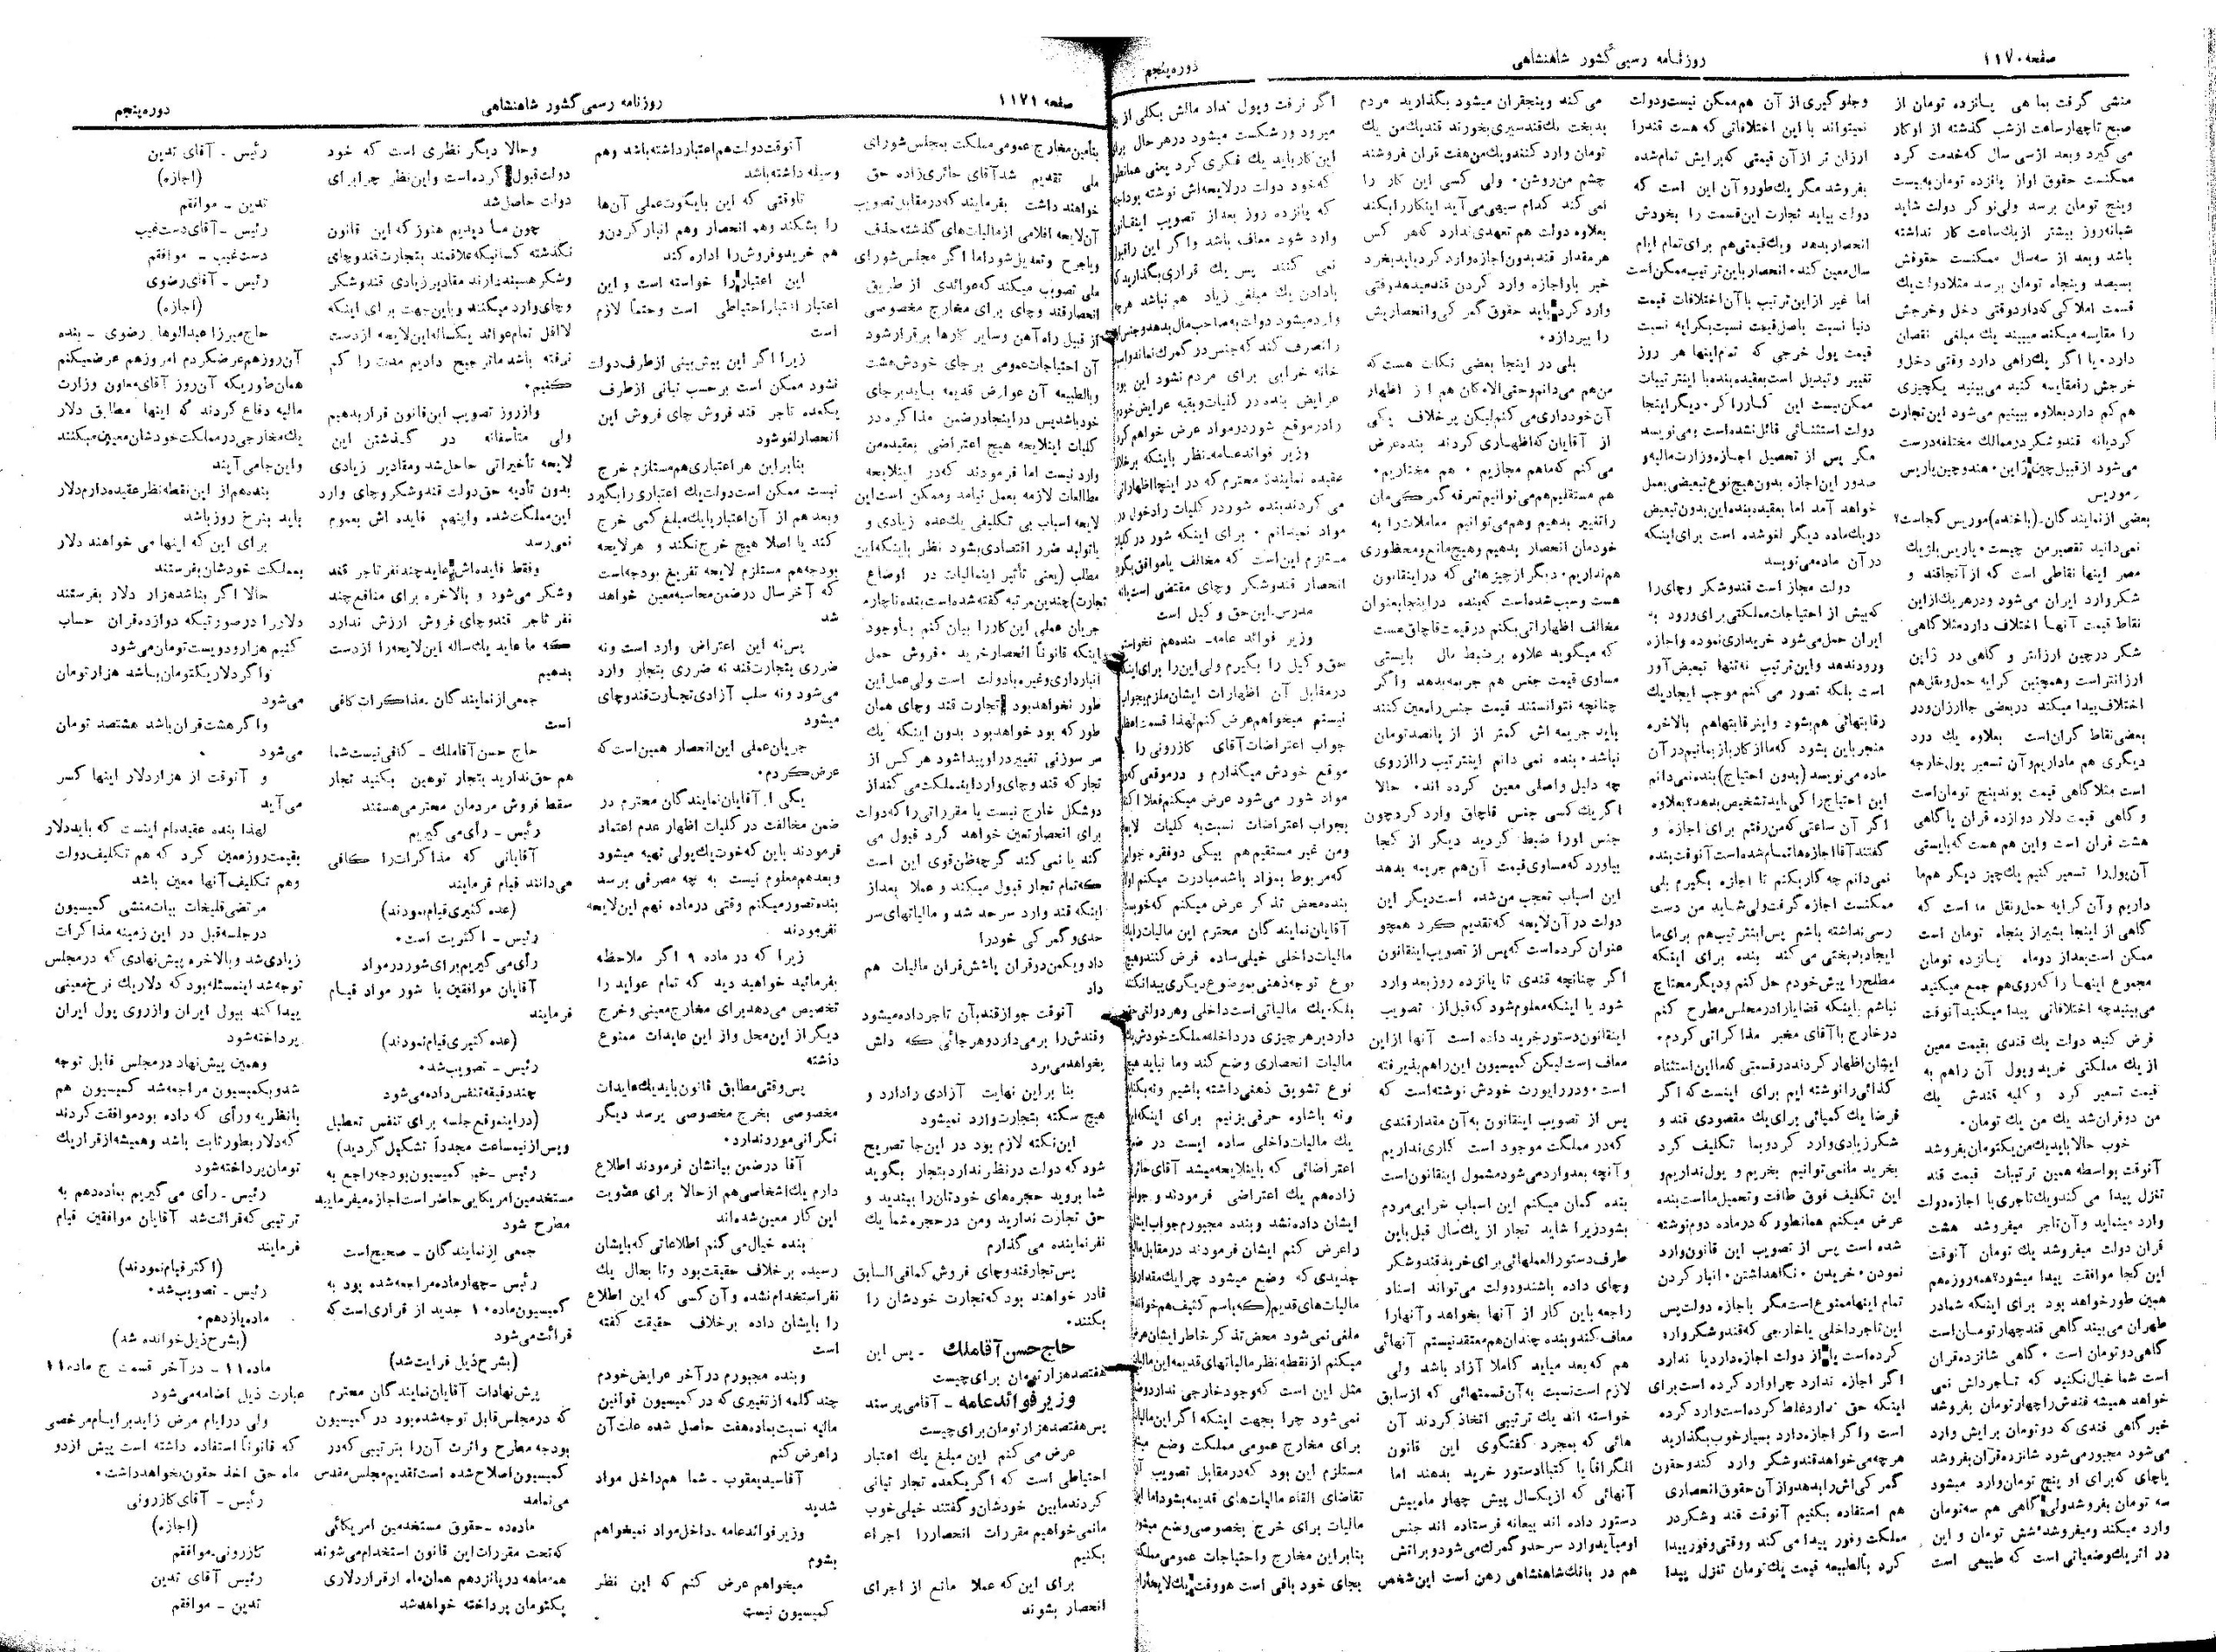 صفحه ۱۱۷۰
روزنامه رسمی کشور شاهنشاهی
دوره پنجم
منشی گرفت بماهی پانزده تومان از
صبح تا چهار ساعت از شب گذشته از او کار
می گیرد و بعد از سی سال که خدمت کرد
ممکنست حقوق او از پانزده تومان به بیست
و پنج تومان برسد ولی نوکر دولت شاید
شبانه روز بیشتر از یک ساعت کار نداشته
باشد و بعد از سه سال ممکنست حقوقش
بسیصد و پنجاه تومان برسد مثلا دولت یک
قسمت املاکی که دارد وقتی دخل و خرجش
را مقایسه میکند میبیند یک مبلغی نقصان
دارد، یا اگر یک راهی دارد وقتی دخل و
خرجش را مقایسه کنید می بینید یکچیزی
هم کم دارد بعلاوه ببینیم می شود این تجارت
کرد یا نه قند و شکر در ممالک مختلفه درست
می شود از قبیل چین ژاپن، هند و چین پاریس
موریس
بعضی از نمایندگان - (با خنده) موریس کجاست؟
نمی دانید تقصیر من چیست، پاریس بلژیک
مصر اینها نقاطی است که از آنجا قند و
شکر وارد ایران می شود و در هر یک از این
نقاط قیمت آنها اختلاف دارد مثلا گاهی
شکر در چین ارزانتر و گاهی در ژاپن
ارزانتر است و همچنین کرایه حمل و نقل هم
اختلاف پیدا میکند در بعضی جا ارزان و در
بعضی نقاط گران است بعلاوه یک درد
دیگری هم ما داریم و آن تسعیر پول خارجه
است مثلا گاهی قیمت پوند پنج تومان است
و گاهی قیمت دلار دوازده قران یا گاهی
هشت قران است و این هم هست که بایستی
آن پول را تسعیر کنیم یک چیز دیگر هم ما
داریم و آن کرایه حمل و نقل ما است که
گاهی از اینجا بشیراز پنجاه تومان است
ممکن است بعد از دو ماه پانزده تومان
مجموع اینها را که روی هم جمع میکنید
می بینید چه اختلافاتی پیدا میکنید آنوقت
فرض کنید دولت یک قندی بقیمت معین
از یک مملکتی خرید و پول آن را هم به
قیمت تسعیر کرد و کلیه قندش یک
من دو قران شد یک من یک تومان،
خوب حالا باید یک من یکتومان بفروشد
آنوقت بواسطه همین ترتیبات قیمت قند
تنزل پیدا می کند و یک تاجری با اجازه دولت
وارد مینماید و آن تاجر میفروشد هشت
قران دولت میفروشد یک تومان آنوقت
این کجا موافقت پیدا میشود؟ همه روزه هم
همین طور خواهد بود برای اینکه شما در
طهران می بیند گاهی قند چهار تومان است
گاهی دو تومان است، گاهی شانزده قران
است شما خیال نکنید که تاجر داش نمی
خواهد همیشه قندش را چهار تومان بفروشد
خیر گاهی قندی که دو تومان برایش وارد
می شود مجبور می شود شانزده قرآن بفروشد
یا چای که برای او پنج تومان وارد میشود
سه تومان بفروشد ولی گاهی هم سه تومان
وارد میکند و میفروشد شش تومان و این
در اثر یک وضعیاتی است که طبیعی است
و جلوگیری از آن هم ممکن نیست و دولت
نمیتواند با این اختلافاتی که هست قند را
ارزان تر از آن قیمتی که برایش تمام شده
بفروشد مگر یک طور و آن این است که
دولت بیاید تجارت این قسمت را بخودش
انحصار بدهد و یک قیمتی هم برای تمام ایام
سال معین کند، انحصار باین ترتیب ممکن است
اما غیر از این ترتیب با آن اختلافات قیمت
دنیا نسبت باصل قیمت نسبت بکرایه نسبت
قیمت پول خرجی که تمام اینها هر روز
تغییر و تبدیل است بعقیده بنده با اینترتیبات
ممکن نیست این کار را کرد، دیگر اینجا
دولت استثنائی قائل نشده است و می نویسد
مگر پس از تحصیل اجازه وزارت مالیه و
صدور این اجازه بدون هیچ نوع تبعیضی بعمل
خواهد آمد اما بعقیده بنده این بدون تبعیض
در یک ماده دیگر لغو شده است برای اینکه
در آن ماده می نویسد
دولت مجاز است قند و شکر و چای را
که بیش از احتیاجات مملکتی برای ورود به
ایران حمل می شود خریداری نموده و اجازه
ورود ندهد و این ترتیب نه تنها تبعیض آور
است بلکه تصور می کنم موجب ایجاد یک
رقابتهائی هم بشود و اینرقابتها هم بالاخره
منجر باین بشود که ما از کار باز بمانیم در آن
ماده می نویسد (بدون احتیاج) بنده نمی دانم
این احتیاج را کی باید تشخیص بدهد؟ بعلاوه
اگر آن ساعتی که من رفتم برای اجازه و
گفتند آقا اجازه ها تمام شده است آنوقت بنده
نمی دانم چه کار بکنم تا اجازه بگیرم بلی
ممکنست اجازه گرفت ولی شاید من دست
رسی نداشته باشم پس اینترتیب هم برای ما
ایجاد بدبختی می کند بنده برای اینکه
مطلب را پیش خودم حل کنم و دیگر محتاج
نباشم باینکه قضایا را در مجلس مطرح کنم
در خارج با آقای مخبر مذاکراتی کردم،
ایشان اظهار کردند در قسمتی که ما این استثناء
کذائی را نوشته ایم برای اینست که اگر
فرضا یک کمپانی برای یک مقصودی قند و
شکر زیادی وارد کرد و بما تکلیف کرد
بخرید ما نمی توانیم بخریم و پول نداریم و
این تکلیف فوق طاقت و تحمیل ما است بنده
عرض میکنم همانطور که در ماده دوم نوشته
شده است پس از تصویب این قانون وارد
نمودن، خریدن، نگاهداشتن، انبار کردن
تمام اینها ممنوع است مگر با اجازه دولت پس
این تاجر داخلی یا خارجی که قند و شکر وارد
کرده است یا از دولت اجازه دارد یا ندارد
اگر اجازه ندارد چرا وارد کرده است برای
اینکه حق ندارد غلط کرده است وارد کرده
است و اگر اجازه دارد بسیار خوب بگذارید
هر چه می خواهد قند و شکر وارد کند و حقوق
گمرکی اش را بدهد و از آن حقوق انحصاری
هم استفاده بکنیم آنوقت قند و شکر در
مملکت وفور پیدا می کند و وقتی وفور پیدا
کرد بالطبیعه قیمت یک تومان تنزل پیدا
می کند و پنجقران میشود بگذارید مردم
بدبخت یک قند سیری بخورند قند یک من یک
تومان وارد کنند و یک من هفت قران فروشند
چشم من روشن، ولی کسی این کار را
نمی کند کدام سپهی می آید اینکار را بکند
بعلاوه دولت هم تعهدی ندارد که هر کس
هر مقدار قند بدون اجازه وارد کرد باید بخرد
خیر باو اجازه وارد کردن قند میدهد وقتی
وارد کرد باید حقوق گمرکی و انحصاریش
را بپردازد،
بلی در اینجا بعضی نکات هست که
من هم می دانم و حتی الامکان هم از اظهار
آن خودداری می کنم لیکن بر خلاف یکی
از آقایان که اظهاری کردند بنده عرض
می کنم که ما هم مجازیم، هم مختاریم،
هم مستقلیم هم می توانیم تعرفه گمرکی مان
را تغییر بدهیم و هم می توانیم معاملات را به
خودمان انحصار بدهیم و هیچ مانع و محظوری
هم نداریم، دیگر از چیزهائی که در اینقانون
هست و سبب شده است که بنده در اینجا بعنوان
مخالف اظهاراتی بکنم در قیمت قاچاق هست
که میگوید علاوه بر ضبط مال بایستی
مساوی قیمت جنس هم جریمه بدهد و اگر
چنانچه نتوانستند قیمت جنس را معین کنند
باید جریمه اش کمتر از از پانصد تومان
نباشد، بنده نمی دانم اینترتیب را از روی
چه دلیل و اصلی معین کرده اند، حالا
اگر یک کسی جنس قاچاق وارد کرد چون
جنس او را ضبط کردید دیگر از کجا
بیاورد که مساوی قیمت آن هم جریمه بدهد
این اسباب تعجب من شده است دیگر این
دولت در آن لایحه که تقدیم کرد همچو
عنوان کرده است که پس از تصویب اینقانون
اگر چنانچه قندی تا پانزده روز بعد وارد
شود یا اینکه معلوم شود که قبل از تصویب
اینقانون دستور خرید داده است آنها از این
معاف است لیکن کمیسیون این را هم پذیرفته
است، و در راپورت خودش نوشته است که
پس از تصویب اینقانون به آن مقدار قندی
که در مملکت موجود است کاری نداریم
و آنچه بعد وارد می شود مشمول اینقانون است
بنده گمان میکنم این اسباب خرابی مردم
بشود زیرا شاید تجار از یک سال قبل باین
طرف دستورالعملهائی برای خرید قند و شکر
و چای داده باشند و دولت می تواند اسناد
راجعه باین کار از آنها بخواهد و آنها را
معاف کند و بنده چندان هم معتقد نیستم آنهائی
هم که بعد میاید کاملا آزاد باشد ولی
لازم است نسبت به آن قسمتهائی که از سابق
خواسته اند یک ترتیبی اتخاذ کردند آن
هائی که بمجرد گفتگوی این قانون
تلگرافا یا کتبا دستور خرید بدهند اما
آنهائی که از یکسال پیش چهار ماه پیش
دستور داده اند بیعانه فرستاده اند جنس
او میآید وارد سرحد و گمرک می شود و براتش
هم در بانک شاهنشاهی رهن است این شخص
اگر نرفت و پول نداد مالش بکلی از
میرود ورشکست میشود در هر حال برای
این کار باید یک فکری کرد یعنی همانطور
که خود دولت در لایحه اش نوشته بود
که پانزده روز بعد از تصویب اینقانون
وارد شود معاف باشد و اگر این را قبول
نمی کنند پس یک قراری بگذارید که
با دادن یک مبلغی زیاد هم نباشد هر چه
وارد میشود دولت به صاحب مال بدهد و جنس او
را تصرف کند که جنس در گمرک نماند و اسباب
خانه خرابی برای مردم نشود این بود
عرایض بنده در کلیات و بقیه عرایض خودم
را در موقع شور در مواد عرض خواهم کرد
وزیر فوائد عامه - نظر باینکه بر خلاف
عقیده نماینده محترم که در اینجا اظهاراتی
می کردند بنده شور در کلیات را دخول در
مواد نمیدانم، برای اینکه شور در کلیات
مستلزم این است که مخالف یا موافق بگوید
انحصار قند و شکر و چای مقتضی است یا نه
مدرس - این حق وکیل است
وزیر فوائد عامه - بنده هم نخواستم
حق وکیل را بگیرم ولی این را برای اینکه
در مقابل آن اظهارات ایشان ملزم بجواب
نیستم میخواهم عرض کنم لهذا قسمت اعظم
جواب اعتراضات آقای کازرونی را
موقع خودش میگذارم و در موقعی که در
مواد شور می شود عرض میکنم فعلا اکتفا
بجواب اعتراضات نسبت به کلیات لایحه
و من غیر مستقیم هم بیکی دو فقره جواب
که مربوط بمواد باشد مبادرت میکنم اولا
بنده محض تذکر عرض میکنم که خوبست
آقایان نمایندگان محترم این مالیات را یک
مالیات داخلی خیلی ساده فرض کنند و هیچ
نوع توجه ذهنی بموضوع دیگری پیدا نکند
بلکه یک مالیاتی است داخلی و هر دولتی حق
دارد بر هر چیزی در داخله مملکت خودش یک
مالیات انحصاری وضع کند و ما نباید هیچ
نوع تشویق ذهنی داشته باشیم و نه بکنایه
و نه باشاره حرفی بزنیم برای اینکه این
یک مالیات داخلی ساده ایست در ضمن
اعتراضاتی که باینلایحه میشد آقای حائری
زاده هم یک اعتراضی فرمودند و جواب
ایشان داده نشد و بنده مجبورم جواب ایشان
را عرض کنم ایشان فرمودند در مقابل مالیات
جدیدی که وضع میشود چرا یک مقداری
مالیات های قدیم (که باسم کثیف هم خوانده)
ملغی نمی شود محض تذکر خاطر ایشان عرض
میکنم از نقطه نظر مالیاتهای قدیمه این مالیات
مثل این است که وجود خارجی ندارد وضع
نمی شود چرا بجهت اینکه اگر این مالیات
برای مخارج عمومی مملکت وضع میشد
مستلزم این بود که در مقابل تصویب آن
تقاضای القاء مالیات های قدیمه بشود اما این
مالیات برای خرج بخصوصی وضع میشود
بنابر این مخارج و احتیاجات عمومی مملکت
بجای خود باقی است هر وقت یک لایحه برای
صفحه ۱۱۷۱
روزنامه رسمی کشور شاهنشاهی
دوره پنجم
بتأمین مخارج عمومی مملکت بمجلس شورای
ملی تقدیم شد آقای حائری زاده حق
خواهند داشت بفرمایند که در مقابل تصویب
آن لایحه اقلامی از مالیات های گذشته حذف
و یا جرح و تعدیل شود اما اگر مجلس شورای
ملی تصویب میکند که عوائدی از طریق
انحصار قند و چای برای مخارج مخصوصی
از قبیل راه آهن و سایر کارها برقرار شود
آن احتیاجات عمومی بر جای خودش هست
و بالطبیعه آن عوارض قدیمه باید بر جای
خود باشد پس در اینجا در ضمن مذاکره در
کلیات اینلایحه هیچ اعتراضی بعقیده من
وارد نیست اما فرمودند که در اینلایحه
مطالعات لازمه بعمل نیامد و ممکن است این
لایحه اسباب بی تکلیفی یک عده زیادی و
یا تولید ضرر اقتصادی بشود نظر باینکه این
مطلب (یعنی تأثیر اینمالیات در اوضاع
تجارت) چندین مرتبه گفته شده است بنده ناچارم
جریان عملی این کار را بیان کنم با وجود
اینکه قانوناً انحصار خرید، فروش حمل
انبارداری و غیره با دولت است ولی عمل این
طور نخواهد بود تجارت قند و چای همان
طور که بود خواهد بود بدون اینکه یک
سر سوزنی تغییر در او پیدا شود هر کس از
تجار که قند و چای وارد این مملکت می کند از
دو شکل خارج نیست یا مقرراتی را که دولت
برای انحصار تعین خواهد کرد قبول می
کند یا نمی کند گرچه ظن قوی این است
که تمام تجار قبول میکند و عملا بعد از
اینکه قند وارد سر حد شد و مالیاتهای سر
حدی و گمرکی خود را
داد و یکمن دو قران یا شش قران مالیات هم
داد
آنوقت جواز قند بآن تاجر داده میشود
و قندش را بر می دارد و هر جائی که دلش
بخواهد می برد
بنا بر این نهایت آزادی را دارد و
هیچ سکته بتجارت وارد نمیشود
این نکته لازم بود در این جا تصریح
شود که دولت در نظر ندارد بتجار بگوید
شما بروید حجره های خودتان را ببندید و
حق تجارت ندارید و من در حجره شما یک
نفر نماینده می گذارم
پس تجار قند و چای فروش کما فی السابق
قادر خواهند بود که تجارت خودشان را
بکنند،
حاج حسن آقا ملک - پس این
هفتصد هزار تومان برای چیست
وزیر فوائد عامه - آقا می پرسند
پس هفتصد هزار تومان برای چیست
عرض می کنم این مبلغ یک اعتبار
احتیاطی است که اگر یکعده تجار تبانی
کردند مابین خودشان و گفتند خیلی خوب
ما نمی خواهیم مقررات انحصار را اجراء
بکنیم
برای این که عملا مانع از اجرای
انحصار بشوند
آنوقت دولت هم اعتبار داشته باشد و هم
وسیله داشته باشد
تا وقتی که این بایکوت عملی آن ها
را بشکند و هم انحصار و هم انبار کردن و
هم خرید و فروش را اداره کند
این اعتبار را خواسته است و این
اعتبار اعتبار احتیاطی است و حتماً لازم
است
زیرا اگر این پیش بینی از طرف دولت
نشود ممکن است بر حسب تبانی از طرف
یکعده تاجر قند فروش چای فروش این
انحصار لغو شود
بنابر این هر اعتباری هم مستلزم خرج
نیست ممکن است دولت یک اعتباری را بگیرد
و بعد هم از آن اعتبار یا یک مبلغ کمی خرج
کند یا اصلا هیچ خرج نکند و هر لایحه
بودجه هم مستلزم لایحه تفریغ بودجه است
که آخر سال در ضمن محاسبه معین خواهد
شد
پس نه این اعتراض وارد است و نه
ضرری بتجارت قند نه ضرری بتجار وارد
می شود و نه سلب آزادی تجارت قند و چای
میشود
جریان عملی این انحصار همین است که
عرض کردم،
یکی از آقایان نمایندگان محترم در
ضمن مخالفت در کلیات اظهار عدم اعتماد
فرمودند باین که خوب یک پولی تهیه میشود
و بعد هم معلوم نیست به چه مصرفی برسد
بنده تصور میکنم وقتی در ماده نهم این لایحه
نفرمودند
زیرا که در ماده ۹ اگر ملاحظه
بفرمائید خواهید دید که تمام عواید را
تخصیص می دهد برای مخارج معینی و خرج
دیگر از این محل و از این عایدات ممنوع
داشته
پس وقتی مطابق قانون باید یک عایدات
مخصوصی بخرج مخصوصی برسد دیگر
نگرانی مورد ندارد،
آقا در ضمن بیانشان فرمودند اطلاع
دارم یک اشخاصی هم از حالا برای عضویت
این کار معین شده اند
بنده خیال می کنم اطلاعاتی که بایشان
رسیده بر خلاف حقیقت بود و تا بحال یک
نفر استخدام نشده و آن کسی که این اطلاع
را بایشان داده بر خلاف حقیقت گفته
است
و بنده مجبورم در آخر عرایض خودم
چند کلمه از تغییری که در کمیسیون قوانین
مالیه نسبت بماده هفت حاصل شده علت آن
را عرض کنم
آقا سید یعقوب - شما هم داخل مواد
شدید
وزیر فوائد عامه - داخل مواد نمیخواهم
بشوم
میخواهم عرض کنم که این نظر
کمیسیون نیست
و حالا دیگر نظری است که خود
دولت قبول کرده است و این نظر چرا برای
دولت حاصل شد
چون ما دیدیم هنوز که این قانون
نگذشته کسانیکه علاقمند بتجارت قند و چای
و شکر هستند دارند مقادیر زیادی قند و شکر
و چای وارد میکنند و باین جهت برای اینکه
لااقل تمام عوائد یکساله این لایحه از دست
نرفته باشد ما ترجیح دادیم مدت را کم
کنیم،
و از روز تصویب این قانون قرار بدهیم
ولی متأسفانه در گذشتن این
لایحه تأخیراتی حاصل شد و مقادیر زیادی
بدون تأدیه حق دولت قند و شکر و چای وارد
این مملکت شده و اینهم فایده اش بعموم
نمی رسد
و فقط فایده اش عاید چند نفر تاجر قند
و شکر می شود و بالاخره برای منافع چند
نفر تاجر قند و چای فروش ارزش ندارد
که ما عاید یک ساله این لایحه را از دست
بدهیم
جمعی از نمایندگان - مذاکرات کافی
است
حاج حسن آقا ملک - کافی نیست شما
هم حق ندارید بتجار توهین بکنید تجار
سقط فروش مردمان محترمی هستند
رئیس - رأی می گیریم
آقایانی که مذاکرات را کافی
می دانند قیام فرمایند
(عده کثیری قیام نمودند)
رئیس - اکثریت است،
رأی می گیریم برای شور در مواد
آقایان موافقین با شور مواد قیام
فرمایند
(عده کثیری قیام نمودند)
رئیس - تصویب شد،
چند دقیقه تنفس داده می شود
(در اینموقع جلسه برای تنفس تعطیل
و پس از نیمساعت مجدداً تشکیل گردید)
رئیس - خبر کمیسیون بودجه راجع به
مستخدمین امریکایی حاضر است اجازه میفرمایید
مطرح شود
جمعی از نمایندگان - صحیح است
رئیس - چهار ماده مراجعه شده بود به
کمیسیون ماده ۱۰ جدید از قراری است که
قرائت می شود
(بشرح ذیل قرایت شد)
پیش نهادات آقایان نمایندگان محترم
که در مجلس قابل توجه شده بود در کمیسیون
بودجه مطرح و اثرت آن را بترتیبی که در
کمیسیون اصلاح شده است تقدیم مجلس مقدس
می نماید
ماده ده - حقوق مستخدمین امریکائی
که تحت مقررات این قانون استخدام می شوند
همه ماهه در پانزدهم همان ماه از قرار دلاری
یکتومان پرداخته خواهد شد
رئیس - آقای تدین
(اجازه)
تدین - موافقم
رئیس - آقای دست غیب
دست غیب - موافقم
رئیس - آقای رضوی
(اجازه)
حاج میرزا عبدالوهاب رضوی - بنده
آن روز هم عرض کردم امروز هم عرض میکنم
همان طوریکه آن روز آقای معاون وزارت
مالیه دفاع کردند که اینها مطابق دلار
یک مخارجی در مملکت خودشان معین میکنند
و این جا می آیند
بنده هم از این نقطه نظر عقیده دارم دلار
باید بنرخ روز باشد
برای این که اینها می خواهند دلار
بمملکت خودشان بفرستند
حالا اگر بنا شد هزار دلار بفرستند
دلار را در صورتیکه دوازده قران حساب
کنیم هزار و دویست تومان می شود
و اگر دلار یکتومان باشد هزار تومان
می شود
و اگر هشت قران باشد هشتصد تومان
می شود
و آنوقت از هزار دلار اینها کسر
می آید
لهذا بنده عقیده ام اینست که باید دلار
بقیمت روز معین کرد که هم تکلیف دولت
و هم تکلیف آنها معین باشد
مرتضی قلیخان بیات منشی کمیسیون
در جلسه قبل در این زمینه مذاکرات
زیادی شد و بالاخره پیش نهادی که در مجلس
توجه شد اینمسئله بود که دلار یک نرخ معینی
پیدا کند بپول ایران و از روی پول ایران
پرداخته شود
و همین پیش نهاد در مجلس قابل توجه
شد و بکمیسیون مراجعه شد کمیسیون هم
با نظریه و رأی که داده بود موافقت کردند
که دلار بطور ثابت باشد و همیشه از قرار یک
تومان پرداخته شود
رئیس - رأی می گیریم بماده دهم به
ترتیبی که قرائت شد آقایان موافقین قیام
فرمایند
(اکثر قیام نمودند)
رئیس - تصویب شد،
ماده یازدهم،
(بشرح ذیل خوانده شد)
ماده ۱۱ - در آخر قسمت ج ماده ۱۱
عبارت ذیل اضافه می شود
ولی در ایام مرض زاید بر ایام مرخصی
که قانوناً استفاده داشته است پیش از دو
ماه حق اخذ حقوق نخواهد داشت،
رئیس - آقای کازرونی
(اجازه)
کازرونی - موافقم
رئیس آقای تدین
تدین - موافقم